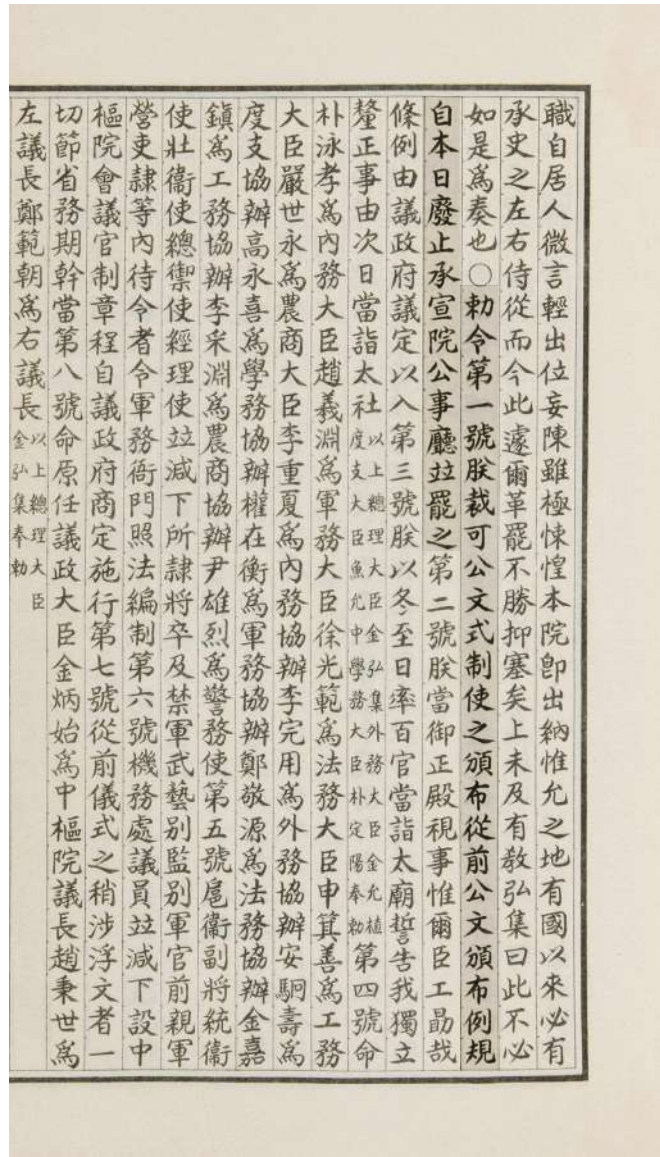 職自居人微言輕出位妄陳雖極悚惶本院卽出納惟允之地有國以來必有
承史之左右侍從而今此遽爾革罷不勝抑塞矣上未及有敎弘集曰此不必
如是爲奏也○勅令第一號朕裁可公文式制使之頒布從前公文頒布例規
自本日廢止承宣院公事廳竝罷之第二號朕當御正殿視事惟爾臣工勖哉
條例由議政府議定以入第三號朕以冬至日率百官當詣太廟誓告我獨立
釐正事由次日當詣太社以上總理大臣金弘集外務大臣金允植度支大臣魚允中學務大臣朴定陽奉勅第四號命
朴泳孝爲內務大臣趙義淵爲軍務大臣徐光範爲法務大臣申箕善爲工務
大臣嚴世永爲農商大臣李重夏爲內務協辦李完用爲外務協辦安駉壽爲
度支協辦高永喜爲學務協辦權在衡爲軍務協辦鄭敬源爲法務協辦金嘉
鎭爲工務協辦李采淵爲農商協辦尹雄烈爲警務使第五號扈衛副將統衛
使壯衛使總禦使經理使竝減下所隷將卒及禁軍武藝別監別軍官前親軍
營吏隷等內待令者令軍務衙門照法編制第六號機務處議員竝減下設中
樞院會議官制章程自議政府商定施行第七號從前儀式之稍涉浮文者一
切節省務期幹當第八號命原任議政大臣金炳始爲中樞院議長趙秉世爲
左議長鄭範朝爲右議長以上總理大臣金弘集奉勅